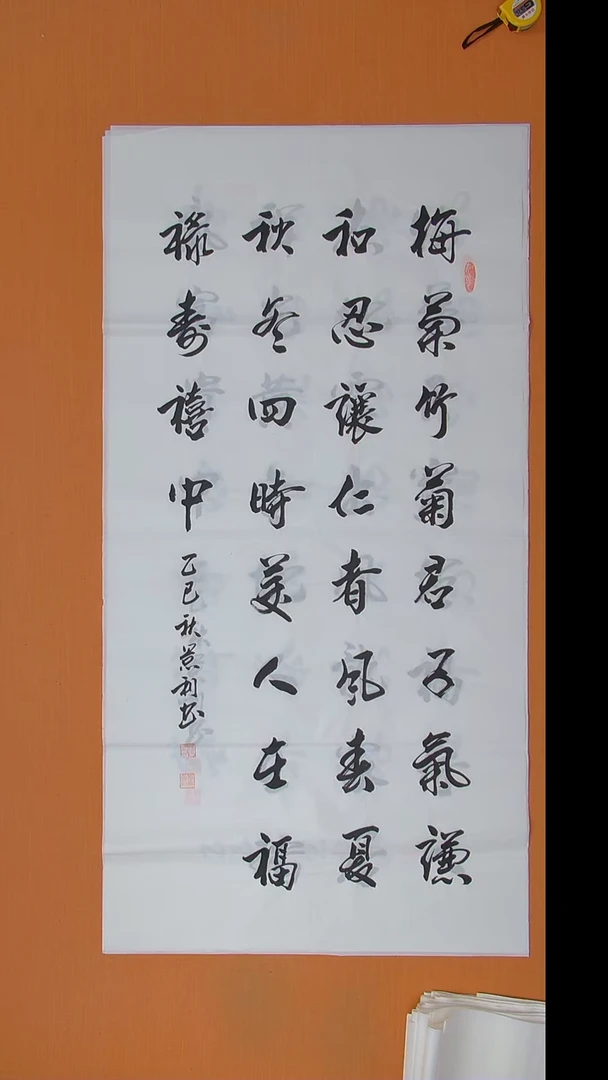 梅蘭竹菊君子氣謙
和忍讓仁者風春夏
秋冬四時美人在福
禄寿禧中
乙巳秋景利书